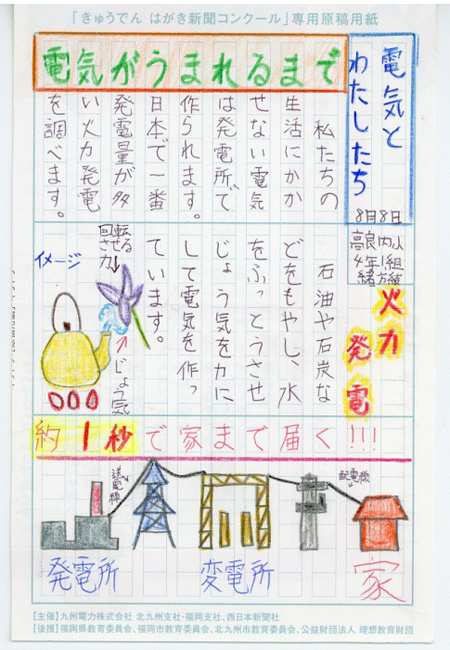 「きゅうでん はがき新聞コンクール」専用原稿用紙
電気と
わたしたち
8月8日
高良内小
4年1組
電気がうまれるまで
私たちの
生活にかか
せない電気
は発電所で
作られます。
日本で一番
発電量が多
い火力発電
を調べます。
火力
発電
石油や石炭な
どをもやし、水
をふっとうさせ
じょう気を力に
して電気を作っ
ています。
イメージ
回転させる力
じょう気
約1秒で家まで届く!!!
送電線
配電線
発電所
変電所
家
【主催】九州電力株式会社 北九州支社・福岡支社、西日本新聞社
【後援】福岡県教育委員会、福岡市教育委員会、北九州市教育委員会、公益財団法人 理想教育財団